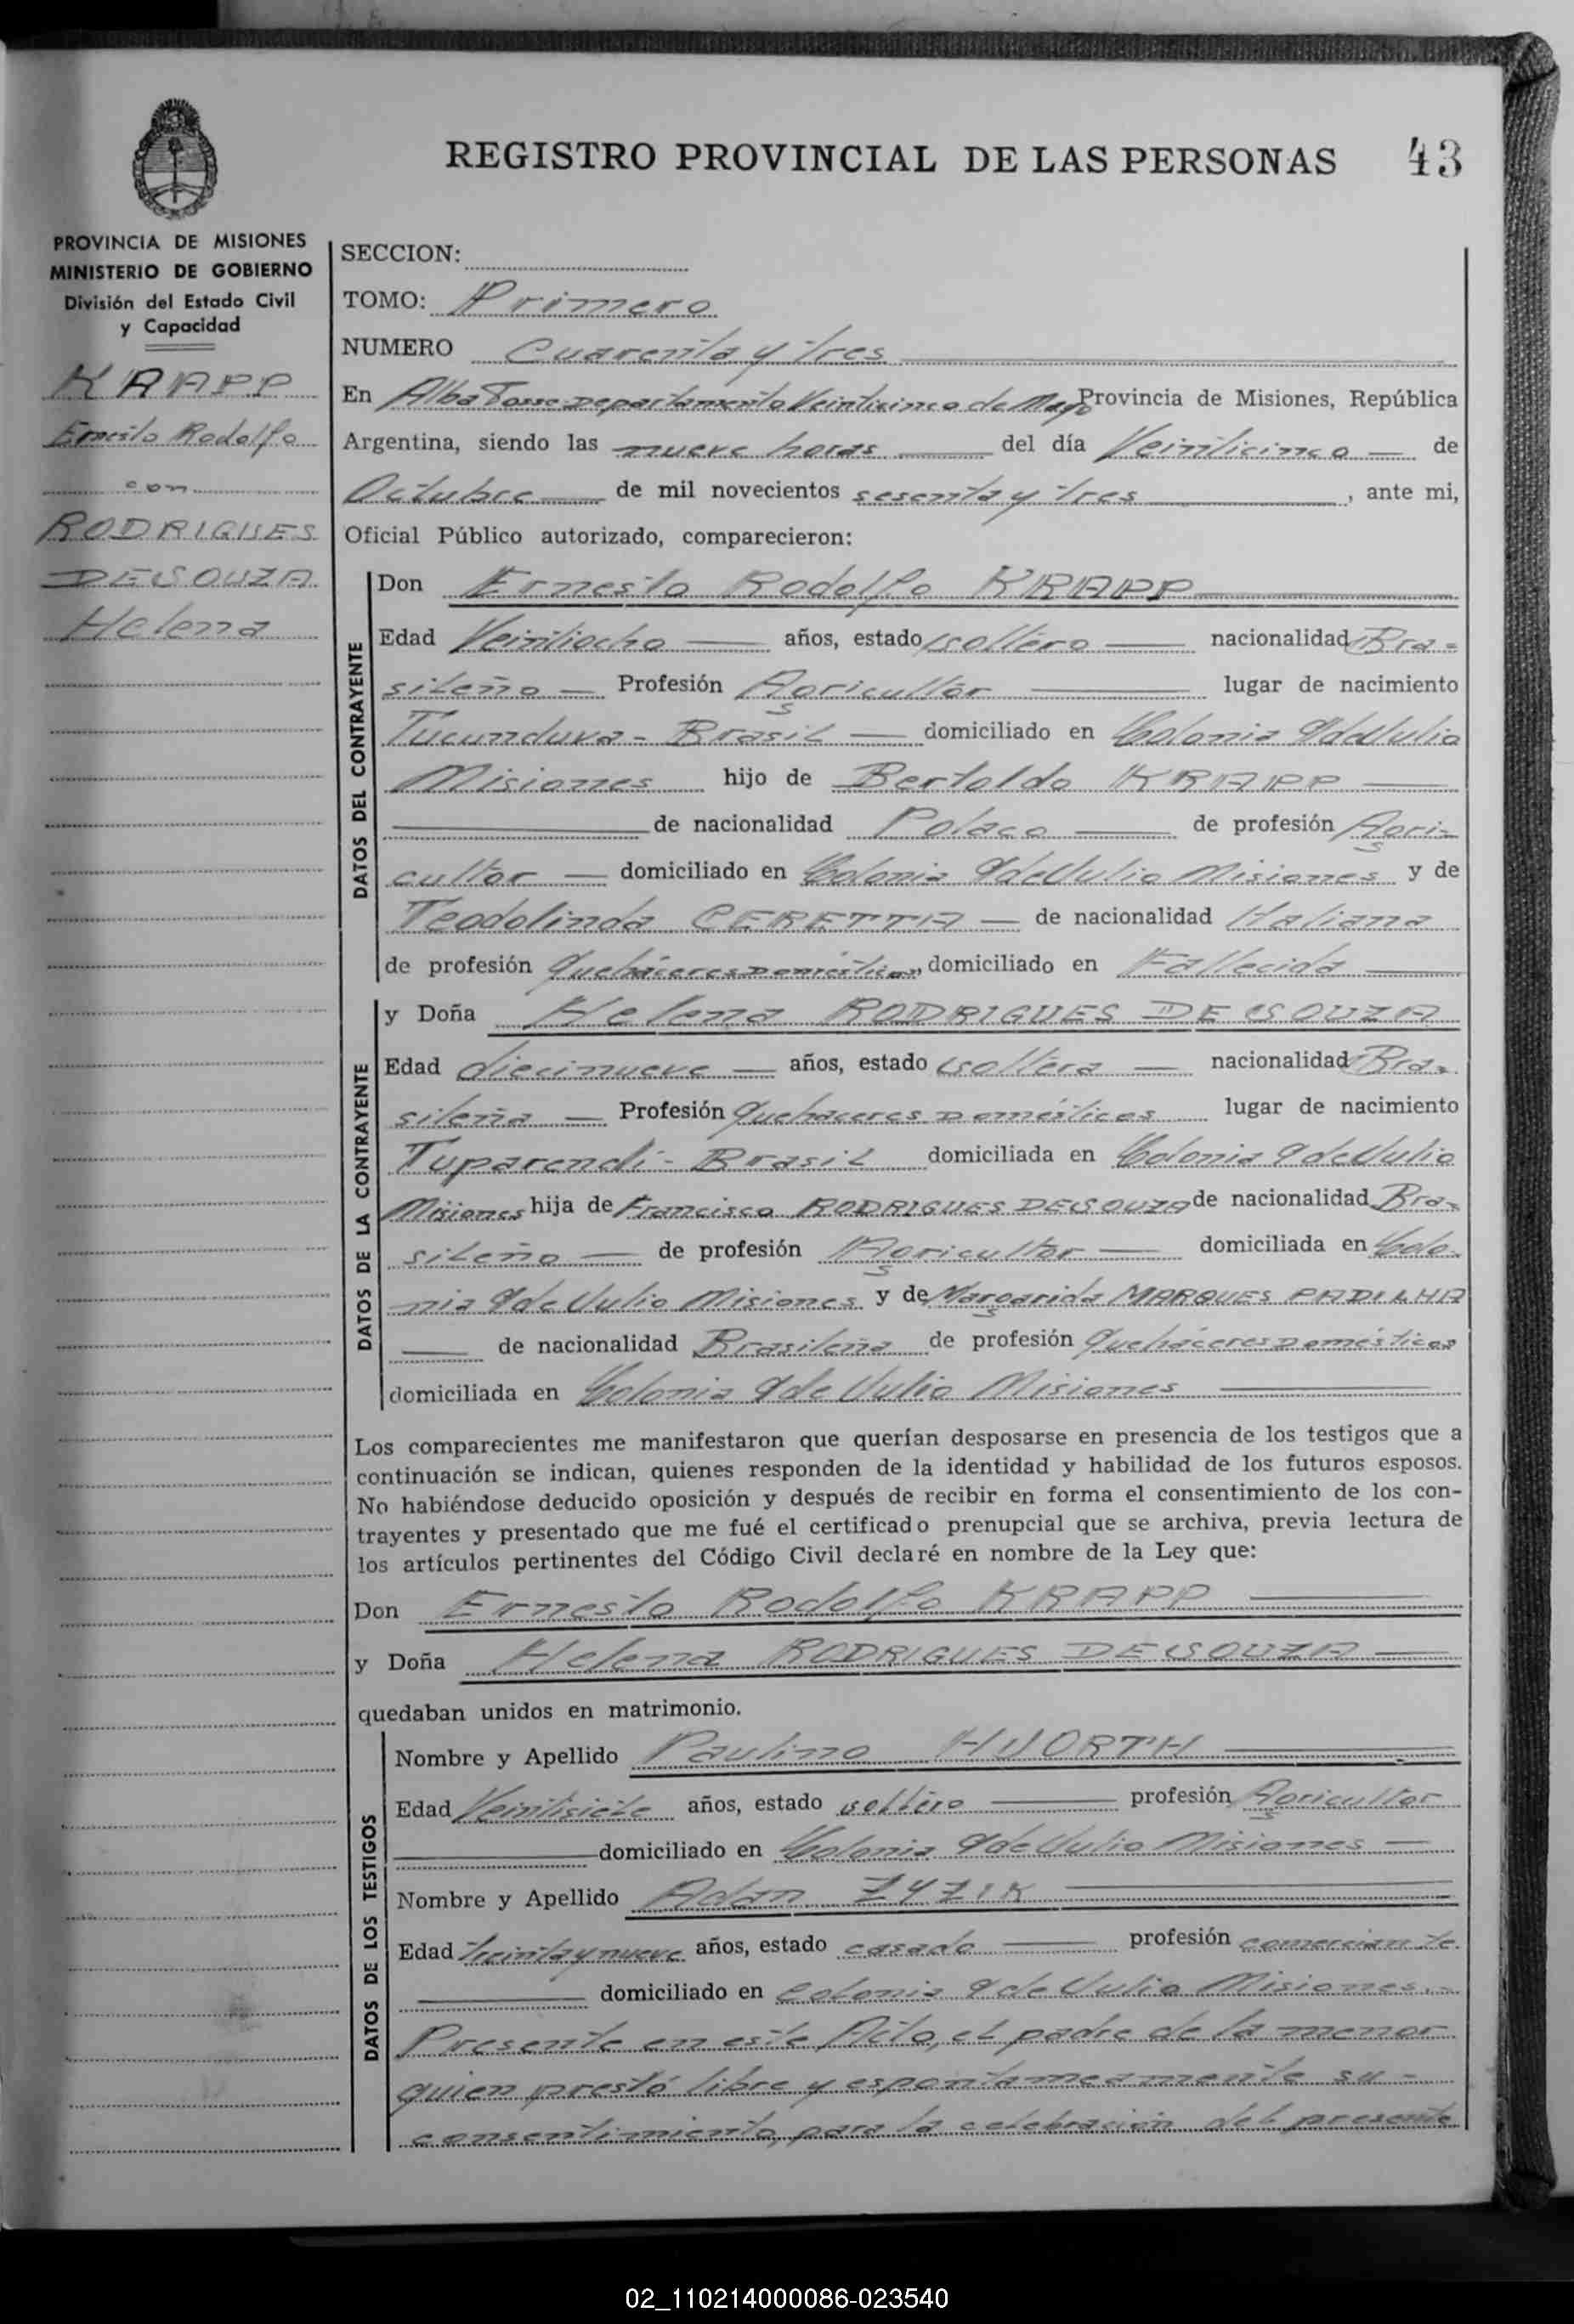 REGISTRO PROVINCIAL DE LAS PERSONAS 43
PROVINCIA DE MISIONES
MINISTERIO DE GOBIERNO
División del Estado Civil
y Capacidad
KRAPP
Ernesto Rodolfo
con
RODRIGUES
DE SOUZA
Helena
SECCION:
TOMO: Primero
NUMERO Cuarenta y tres
En Alba Posse Departamento Veinticinco de Mayo Provincia de Misiones, República
Argentina, siendo las nueve horas del día Veinticinco de
Octubre de mil novecientos sesenta y tres, ante mi,
Oficial Público autorizado, comparecieron:
DATOS DEL CONTRAYENTE
Don Ernesto Rodolfo KRAPP
Edad Veintiocho años, estado soltero nacionalidad Bra-
sileño Profesión Agricultor lugar de nacimiento
Tucunduva - Brasil domiciliado en Colonia 9 de Julio
Misiones hijo de Bertoldo KRAPP
de nacionalidad Polaco de profesión Agri-
cultor domiciliado en Colonia 9 de Julio Misiones y de
Teodolinda CERETTA de nacionalidad Italiana
de profesión Quehaceres Domésticos, domiciliado en Fallecida
DATOS DE LA CONTRAYENTE
y Doña Helena RODRIGUES DE SOUZA
Edad diecinueve años, estado soltera nacionalidad Bra-
sileña Profesión Quehaceres Domésticos lugar de nacimiento
Tuparendi - Brasil domiciliada en Colonia 9 de Julio
Misiones hija de Francisco RODRIGUES DE SOUZA de nacionalidad Bra-
sileño de profesión Agricultor domiciliada en Colo-
nia 9 de Julio Misiones y de Margarida MARQUES PADILHA
de nacionalidad Brasileña de profesión Quehaceres Domésticos
domiciliada en Colonia 9 de Julio Misiones
Los comparecientes me manifestaron que querían desposarse en presencia de los testigos que a
continuación se indican, quienes responden de la identidad y habilidad de los futuros esposos.
No habiéndose deducido oposición y después de recibir en forma el consentimiento de los con-
trayentes y presentado que me fué el certificado prenupcial que se archiva, previa lectura de
los artículos pertinentes del Código Civil declaré en nombre de la Ley que:
Don Ernesto Rodolfo KRAPP
y Doña Helena RODRIGUES DE SOUZA
quedaban unidos en matrimonio.
DATOS DE LOS TESTIGOS
Nombre y Apellido Paulino HJORTH
Edad Veintisiete años, estado soltero profesión Agricultor
domiciliado en Colonia 9 de Julio Misiones
Nombre y Apellido Adan ZYZIK
Edad Treinta y nueve años, estado casado profesión comerciante
domiciliado en Colonia 9 de Julio Misiones.-
Presente en este Acto, el padre de la menor
quien prestó libre y espontaneamente su -
consentimiento, para la celebración del presente
02_110214000086-023540